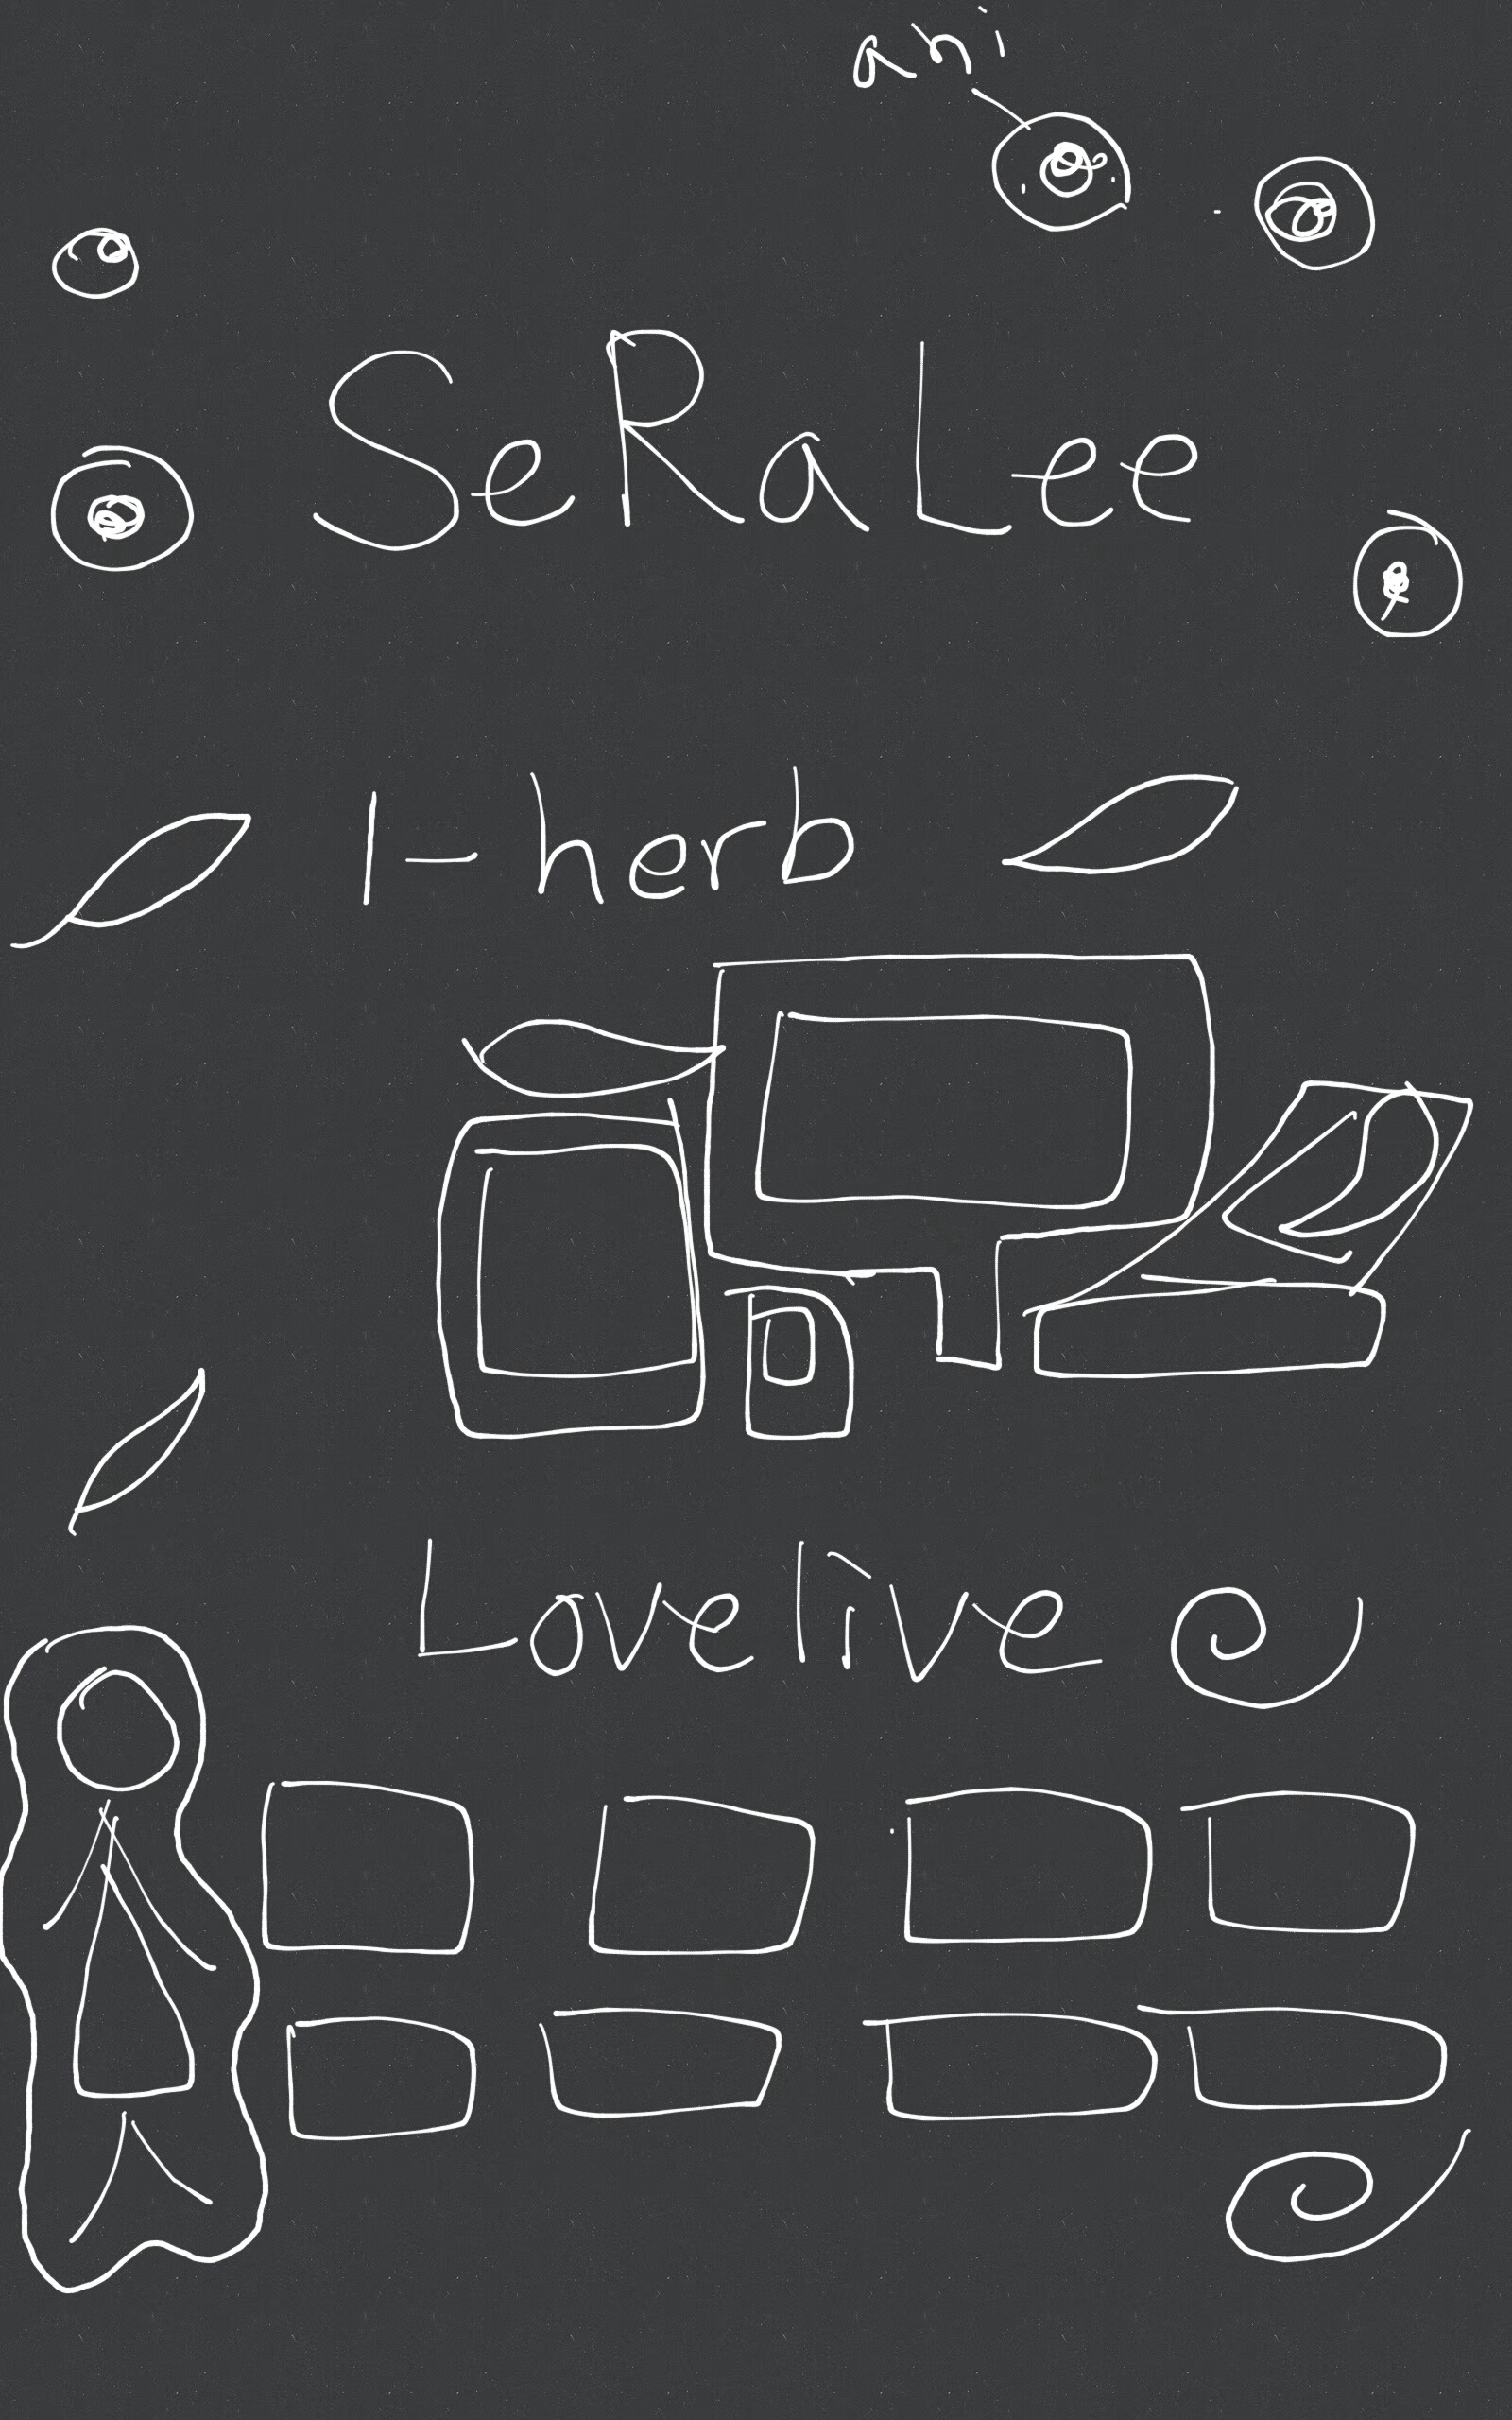 ani
SeRaLee
I-herb
Lovelive